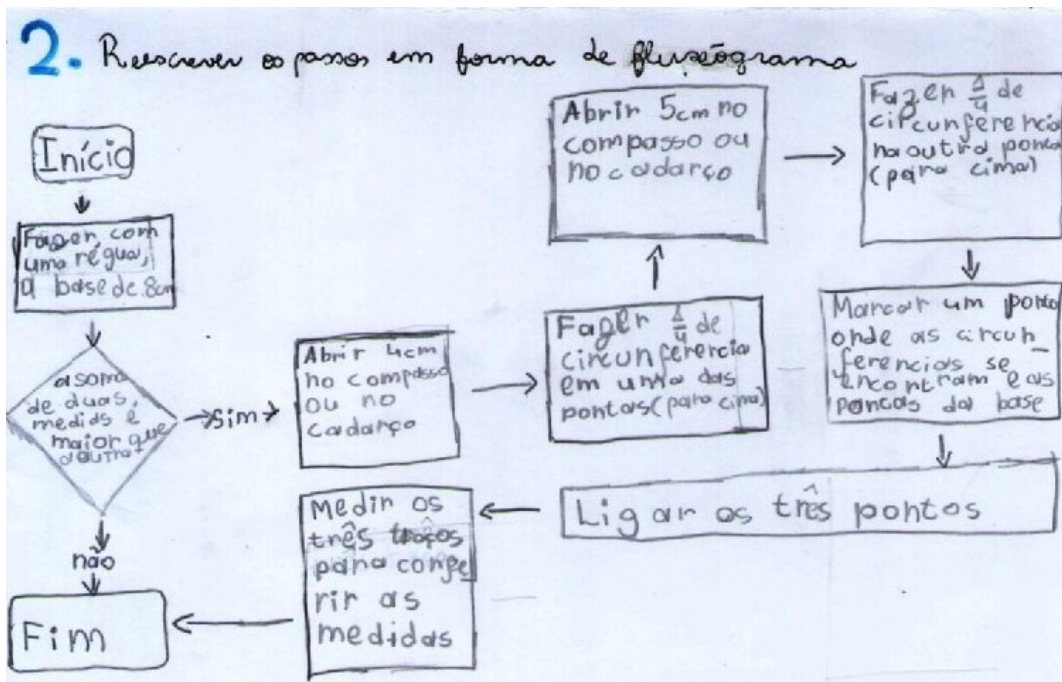 2. Reescrever os passos em forma de fluxograma
Início
Fazer, com
uma régua,
a base de 8cm
a soma
de duas
medidas é
maior que
a outra?
Sim
não
Abrir 4cm
no compasso
ou no
cadarço
Fazer 1/4 de
circunferencia
em uma das
pontas (para cima)
Abrir 5cm no
compasso ou
no cadarço
Fazer 1/4 de
circunferencia
na outra ponta
(para cima)
Marcar um ponto
onde as circun
ferencias se
encontram e as
pontas da base
Ligar os três pontos
Medir os
três traços
para confe
rir as
medidas
Fim